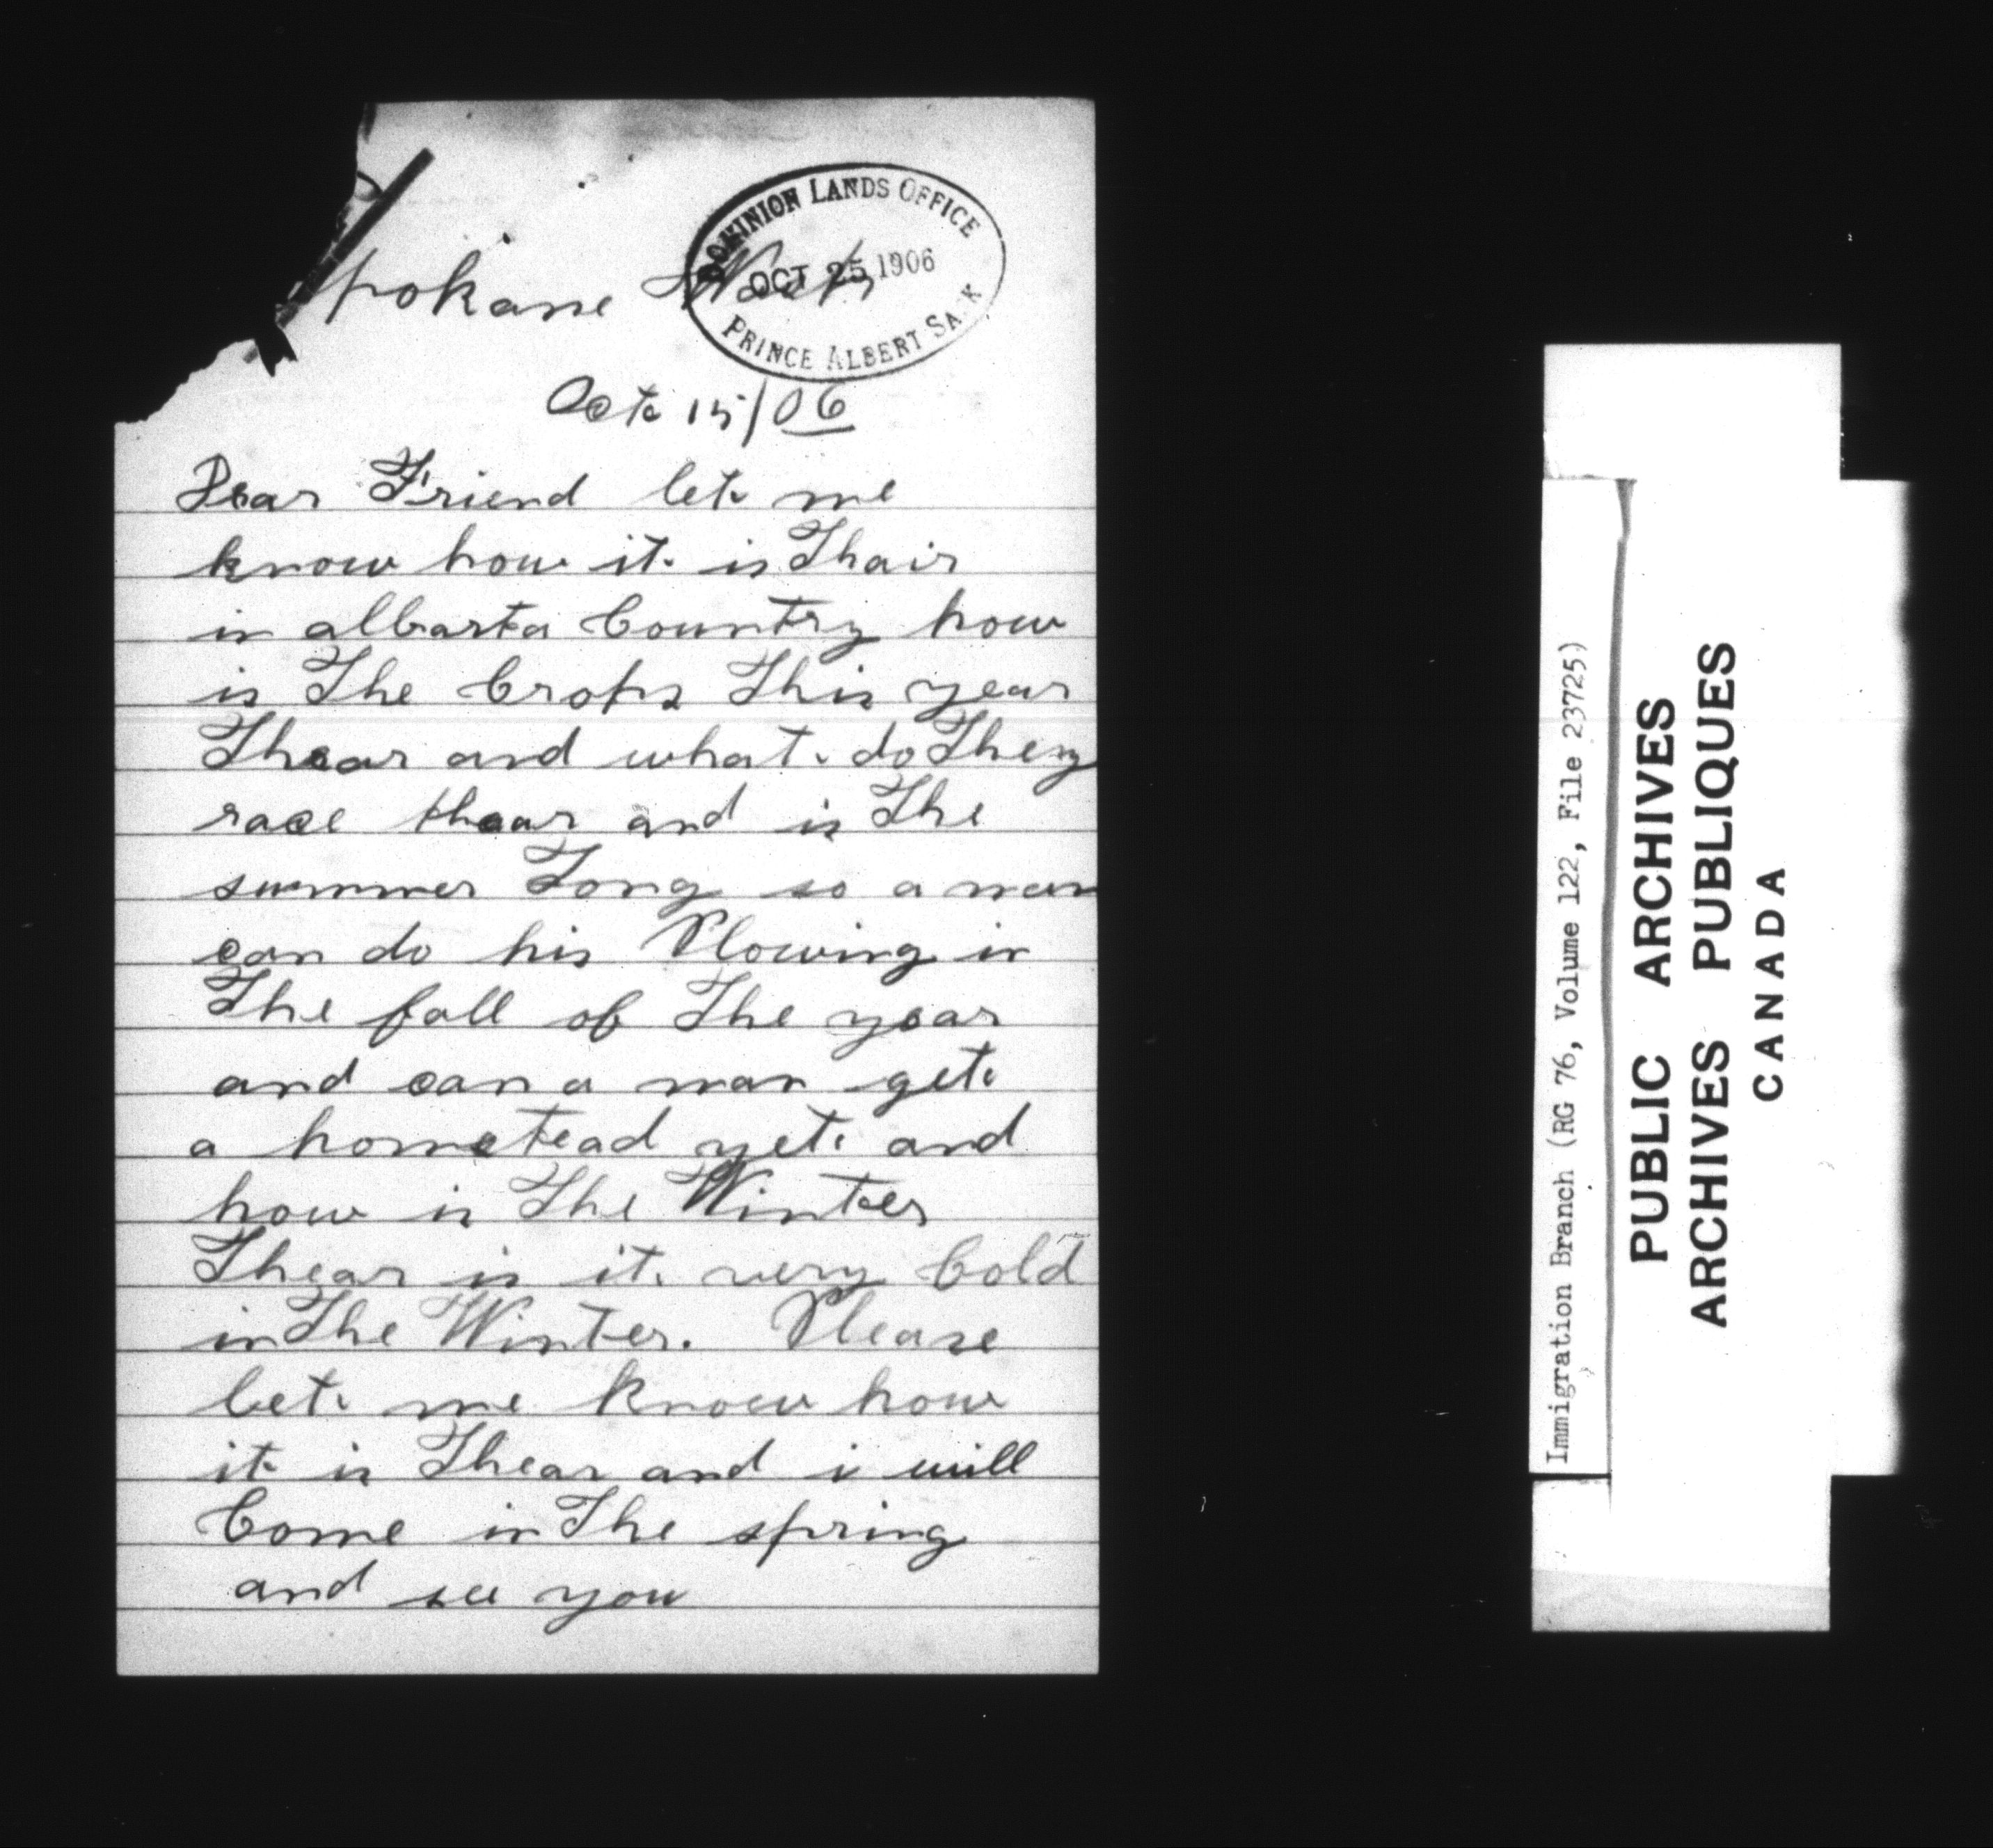 DOMINION LANDS OFFICE
OCT 25 1906
PRINCE ALBERT SASK
Spokane Wash
Oct 15/06
Dear Friend let me
know how it is Thair
in albarta Country how
is The Crops This year
Thear and what do They
race thear and is The
summer Long so a man
can do his Plowing in
The fall of The year
and can a man get
a homstead yet and
how is The Winter
Thear is it very Cold
in The Winter. Please
let me know how
it is Thear and i will
Come in The spring
and see you
Immigration Branch (RG 76, Volume 122, File 23725)
PUBLIC ARCHIVES
ARCHIVES PUBLIQUES
CANADA